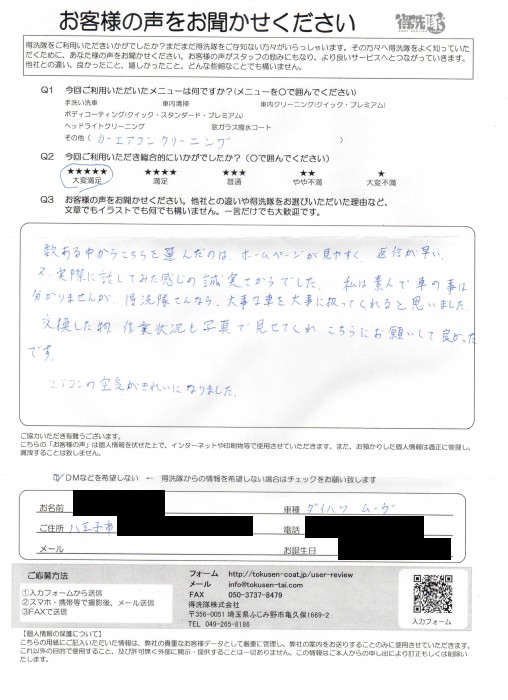 お客様の声をお聞かせください
得洗隊
得洗隊をご利用いただきいかがでしたか？まだまだ得洗隊をご存知ない方々がいらっしゃいます。その方々へ得洗隊をよく知っていた
だくために、あなた様の声をお聞かせください。お客様の声がスタッフの励みにもなり、より良いサービスへとつながっていきます。
他社との違い、良かったこと、嬉しかったこと、どんな些細なことでも構いません。
Q1 今回ご利用いただいたメニューは何ですか？(メニューを○で囲んでください)
手洗い洗車 車内清掃 車内クリーニング(クイック・プレミアム)
ボディコーティング(クイック・スタンダード・プレミアム)
ヘッドライトクリーニング 窓ガラス撥水コート
その他( カーエアコンクリーニング )
Q2 今回ご利用いただき総合的にいかがでしたか？(○で囲んでください)
★★★★★ ★★★★ ★★★ ★★ ★
大変満足 満足 普通 やや不満 大変不満
Q3 お客様の声をお聞かせください。他社との違いや得洗隊をお選びいただいた理由など、
文章でもイラストでも何でも構いません。一言だけでも大歓迎です。
数ある中からこちらを選んだのは、ホームページが見やすく、返信が早い。
又、実際に話してみた感じの誠実さからでした。 私は素人で車の事は
分かりませんが、得洗隊さんなら、大事な車を大事に扱ってくれると思いました。
交換した物、作業状況も写真で見せてくれ こちらにお願いして良かった
です。
エアコンの空気がきれいになりました。
ご協力いただき有難うございます。
こちらの「お客様の声」は個人情報を伏せた上で、インターネットや印刷物等で使用させていただきます。また、お預かりした個人情報は適正に管理し、
漏洩することは致しません。
DMなどを希望しない ← 得洗隊からの情報を希望しない場合はチェックをお願い致します
お名前 車種 ダイハツ ムーヴ
ご住所 八王子市 電話
メール お誕生日
ご応募方法
①入力フォームから送信
②スマホ・携帯等で撮影後、メール送信
③FAXで送信
フォーム http://tokusen-coat.jp/user-review
メール info@tokusen-tai.com
FAX 050-3737-8479
得洗隊株式会社
〒356-0051 埼玉県ふじみ野市亀久保1669-2
TEL 049-265-8186
入力フォーム
【個人情報の保護について】
こちらの用紙にご記入いただいた情報は、弊社の貴重なお客様データとして厳重に管理し、弊社の案内をお送りすることのみに使用させていただきます。
これ以外の目的で使用すること、及び許可無く外部に開示・提供することは一切ありません。この情報はご本人からの申し出により訂正もしくは削除い
たします。